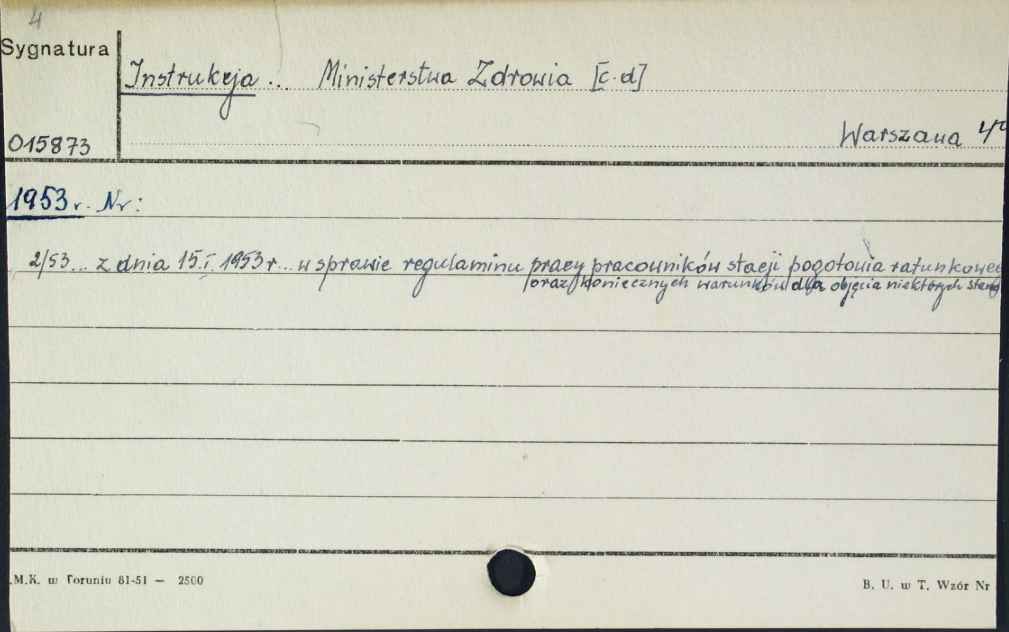 4
Sygnatura
Instrukcja ... Ministerstwa Zdrowia [c.d]
015873
Warszawa 4°
1953 r. Nr:
2/53 ... z dnia 15.I.1953 r ... w sprawie regulaminu pracy pracowników stacji pogotowia ratunkowe
oraz koniecznych warunków dla objęcia niektórych
.M.K. w Toruniu 81-51 — 2500
B. U. w T. Wzór Nr